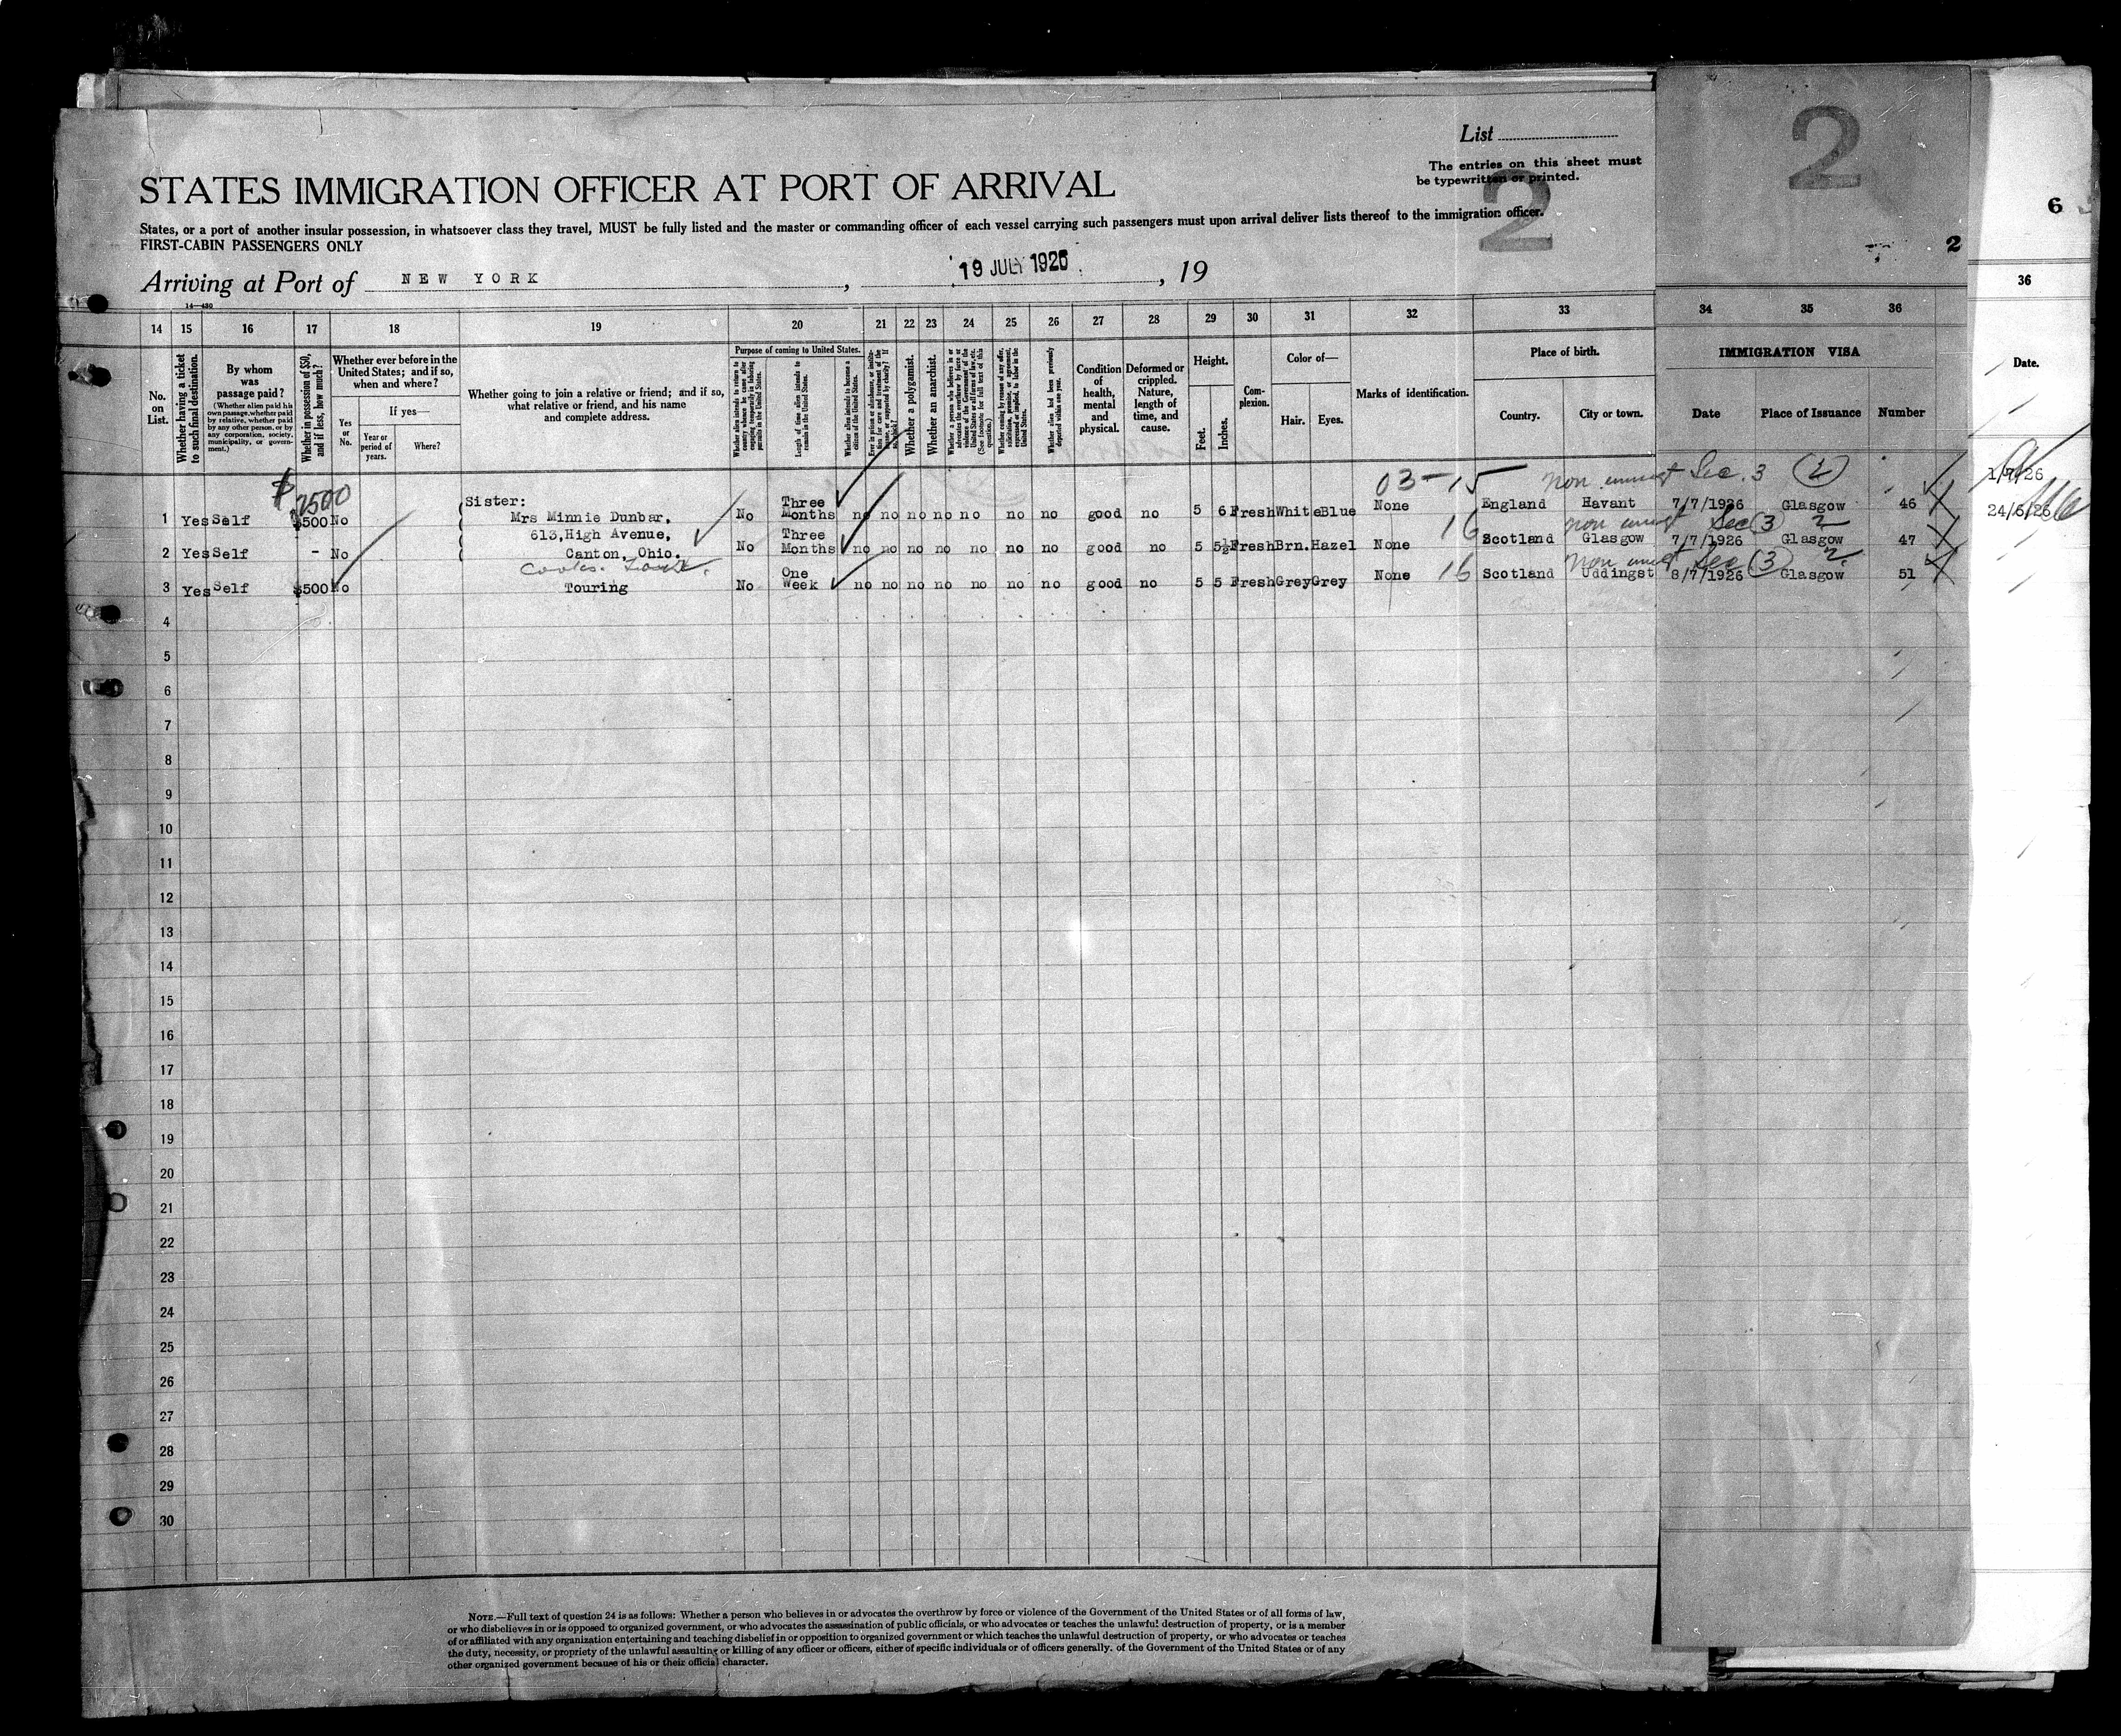 List
The entries on this sheet must
be typewritten or printed.
2
2
2
6
STATES IMMIGRATION OFFICER AT PORT OF ARRIVAL
States, or a port of another insular possession, in whatsoever class they travel, MUST be fully listed and the master or commanding officer of each vessel carrying such passengers must upon arrival deliver lists thereof to the immigration officer.
FIRST-CABIN PASSENGERS ONLY
Arriving at Port of NEW YORK , 19 JULY 1926 , 19
14—430
14 15 16 17 18 19 20 21 22 23 24 25 26 27 28 29 30 31 32 33 34 35 36
36
No. on List.
Whether having a ticket to such final destination.
By whom was passage paid?
(Whether alien paid his own passage, whether paid by relative, whether paid by any other person, or by any corporation, society, municipality, or government.)
Whether in possession of $50, and if less, how much?
Whether ever before in the United States; and if so, when and where?
Yes or No.
If yes—
Year or period of years.
Where?
Whether going to join a relative or friend; and if so, what relative or friend, and his name and complete address.
Purpose of coming to United States.
Length of time alien intends to remain in the United States.
Whether alien intends to become a citizen of the United States.
Whether a polygamist.
Whether an anarchist.
Condition of health, mental and physical.
Deformed or crippled. Nature, length of time, and cause.
Height.
Feet.
Inches.
Com-plexion.
Color of—
Hair.
Eyes.
Marks of identification.
Place of birth.
Country.
City or town.
IMMIGRATION VISA
Date
Place of Issuance
Number
Date.
$2500
03-15
non immigt Sec. 3 (2)
1/7/26
24/6/26
1 Yes Self $500 No Sister: Mrs Minnie Dunbar, No Three Months no no no no no no no good no 5 6 Fresh White Blue None England Havant 7/7/1926 Glasgow 46
613, High Avenue,
16 non immigt Sec (3) 2
2 Yes Self - No Canton, Ohio. No Three Months no no no no no no no good no 5 5½ Fresh Brn. Hazel None Scotland Glasgow 7/7/1926 Glasgow 47
Cooks. Tour.
16 Non immigt Sec (3) 2
3 Yes Self $500 No Touring No One Week no no no no no no no good no 5 5 Fresh Grey Grey None Scotland Uddingst 8/7/1926 Glasgow 51
4
5
6
7
8
9
10
11
12
13
14
15
16
17
18
19
20
21
22
23
24
25
26
27
28
29
30
NOTE.—Full text of question 24 is as follows: Whether a person who believes in or advocates the overthrow by force or violence of the Government of the United States or of all forms of law,
or who disbelieves in or is opposed to organized government, or who advocates the assassination of public officials, or who advocates or teaches the unlawful destruction of property, or is a member
of or affiliated with any organization entertaining and teaching disbelief in or opposition to organized government or which teaches the unlawful destruction of property, or who advocates or teaches
the duty, necessity, or propriety of the unlawful assaulting or killing of any officer or officers, either of specific individuals or of officers generally, of the Government of the United States or of any
other organized government because of his or their official character.